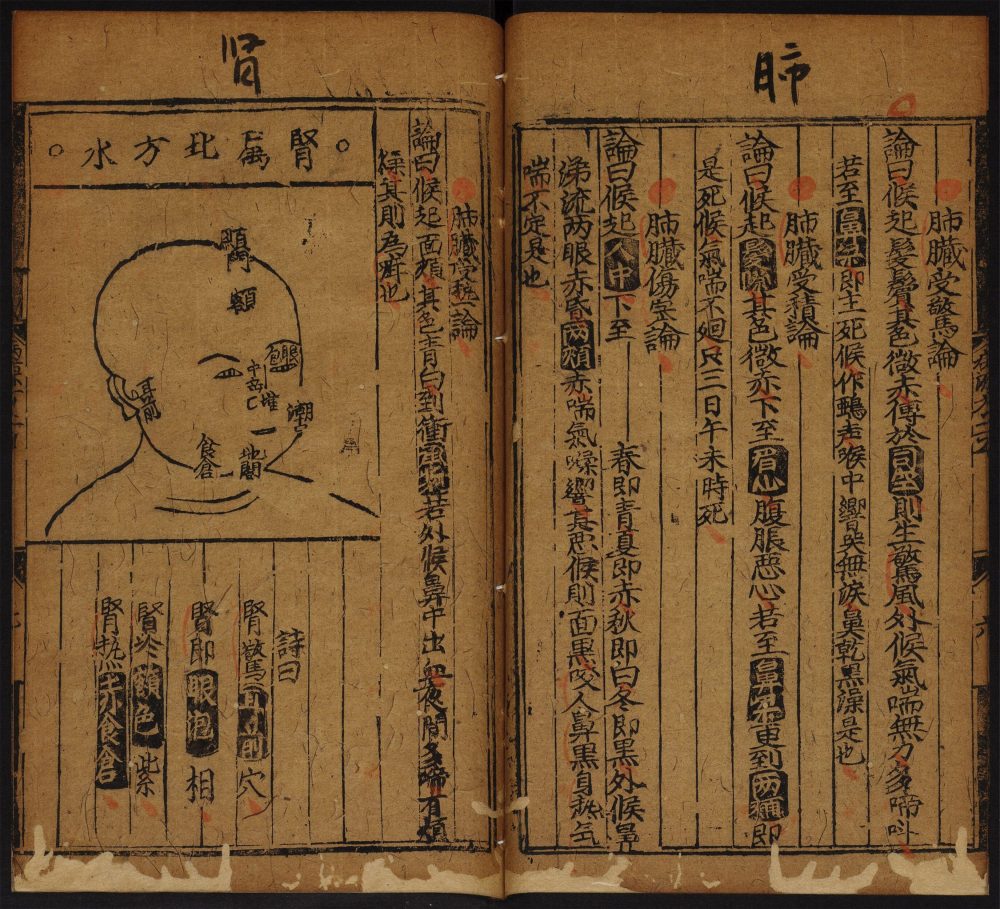 肺
肺臟受驚論
論曰候起髮鬢其色微赤傳於司空則生驚風外候氣喘無力多啼叫
若至鼻準即主死候作鵶声喉中響哭無淚鼻乾黑燥是也
肺臟受積論
論曰候起髮際其色微赤下至眉心腹脹惡心若至鼻準更到两頰即
是死候氣喘不廻只三日午未時死
肺臟傷寒論
論曰候起人中下至 春即青夏即赤秋即白冬即黑外候鼻
涕流两眼赤昏两頰赤喘氣噪響其惡候則面黑咬人鼻黑身热气
喘不定是也
肺臟受热論
論曰候起面頰其色青白到衝風池若外候鼻中出血夜間多啼有煩
燥其則為癖也
腎
腎屬北方水
顖
額
眼胞
中岳
準
潮
耳前
食倉
地閣
詩曰
腎驚耳前穴
腎即眼泡相
腎冷額色紫
腎热赤食倉